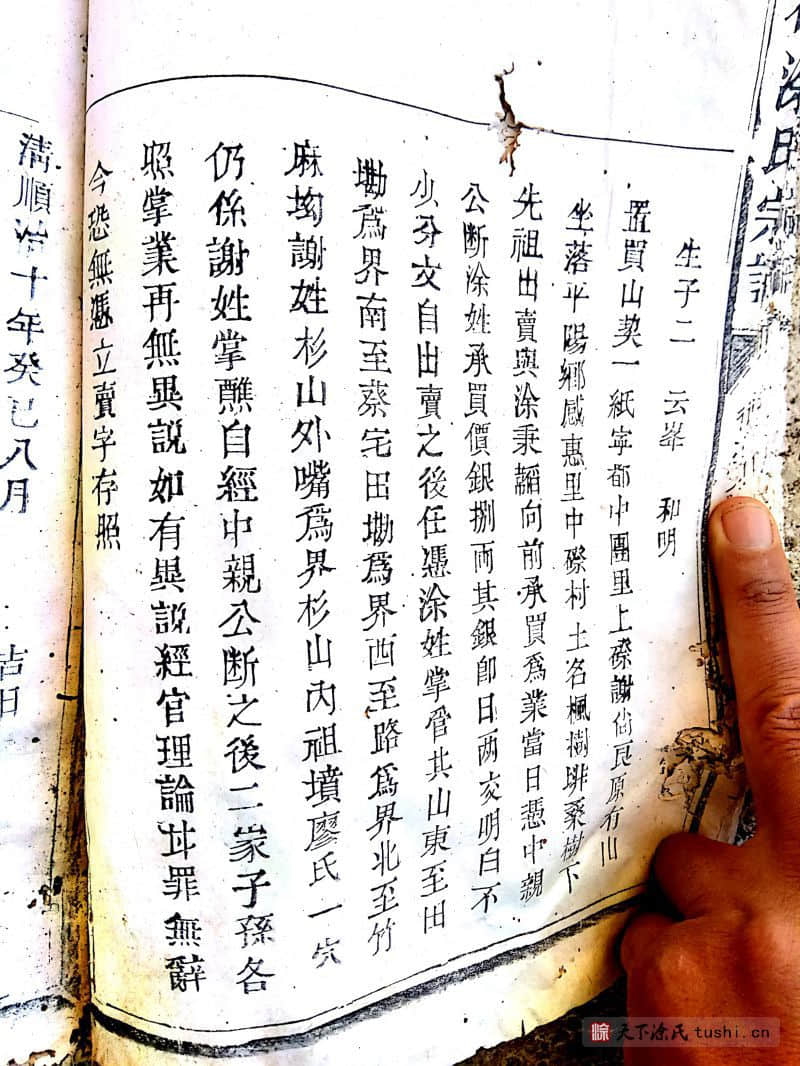 涂氏宗譜
生子二 云峯 和明
置買山契一紙寧都中團里上磜謝尙民原有山
坐落平陽鄉感惠里中磜村土名楓樹排桑樹下
先祖出賣與涂秉韜向前承買爲業當日憑中親
公斷涂姓承買價銀捌両其銀卽日両交明白不
少分文自出賣之後任憑涂姓掌管其山東至田
墈爲界南至蔡宅田墈爲界西至路爲界北至竹
麻坳謝姓杉山外嘴爲界杉山內祖墳廖氏一穴
仍係謝姓掌醮自經中親公断之後二家子孫各
照掌業再無異說如有異說經官理論甘罪無辭
今恐無憑立賣字存照
清順治十年癸巳八月 吉日
涂 天下涂氏 tushi.cn